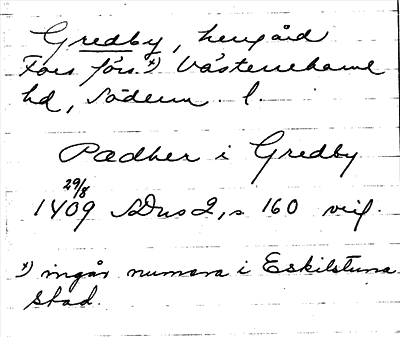 Gredby, herrgård
Fors förs.*) Västerrekarne
hd, Söderm. l.
Pædher i Gredby
29/8
1409 SDns 2, s 160 vid.
*) ingår numera i Eskilstuna
stad.